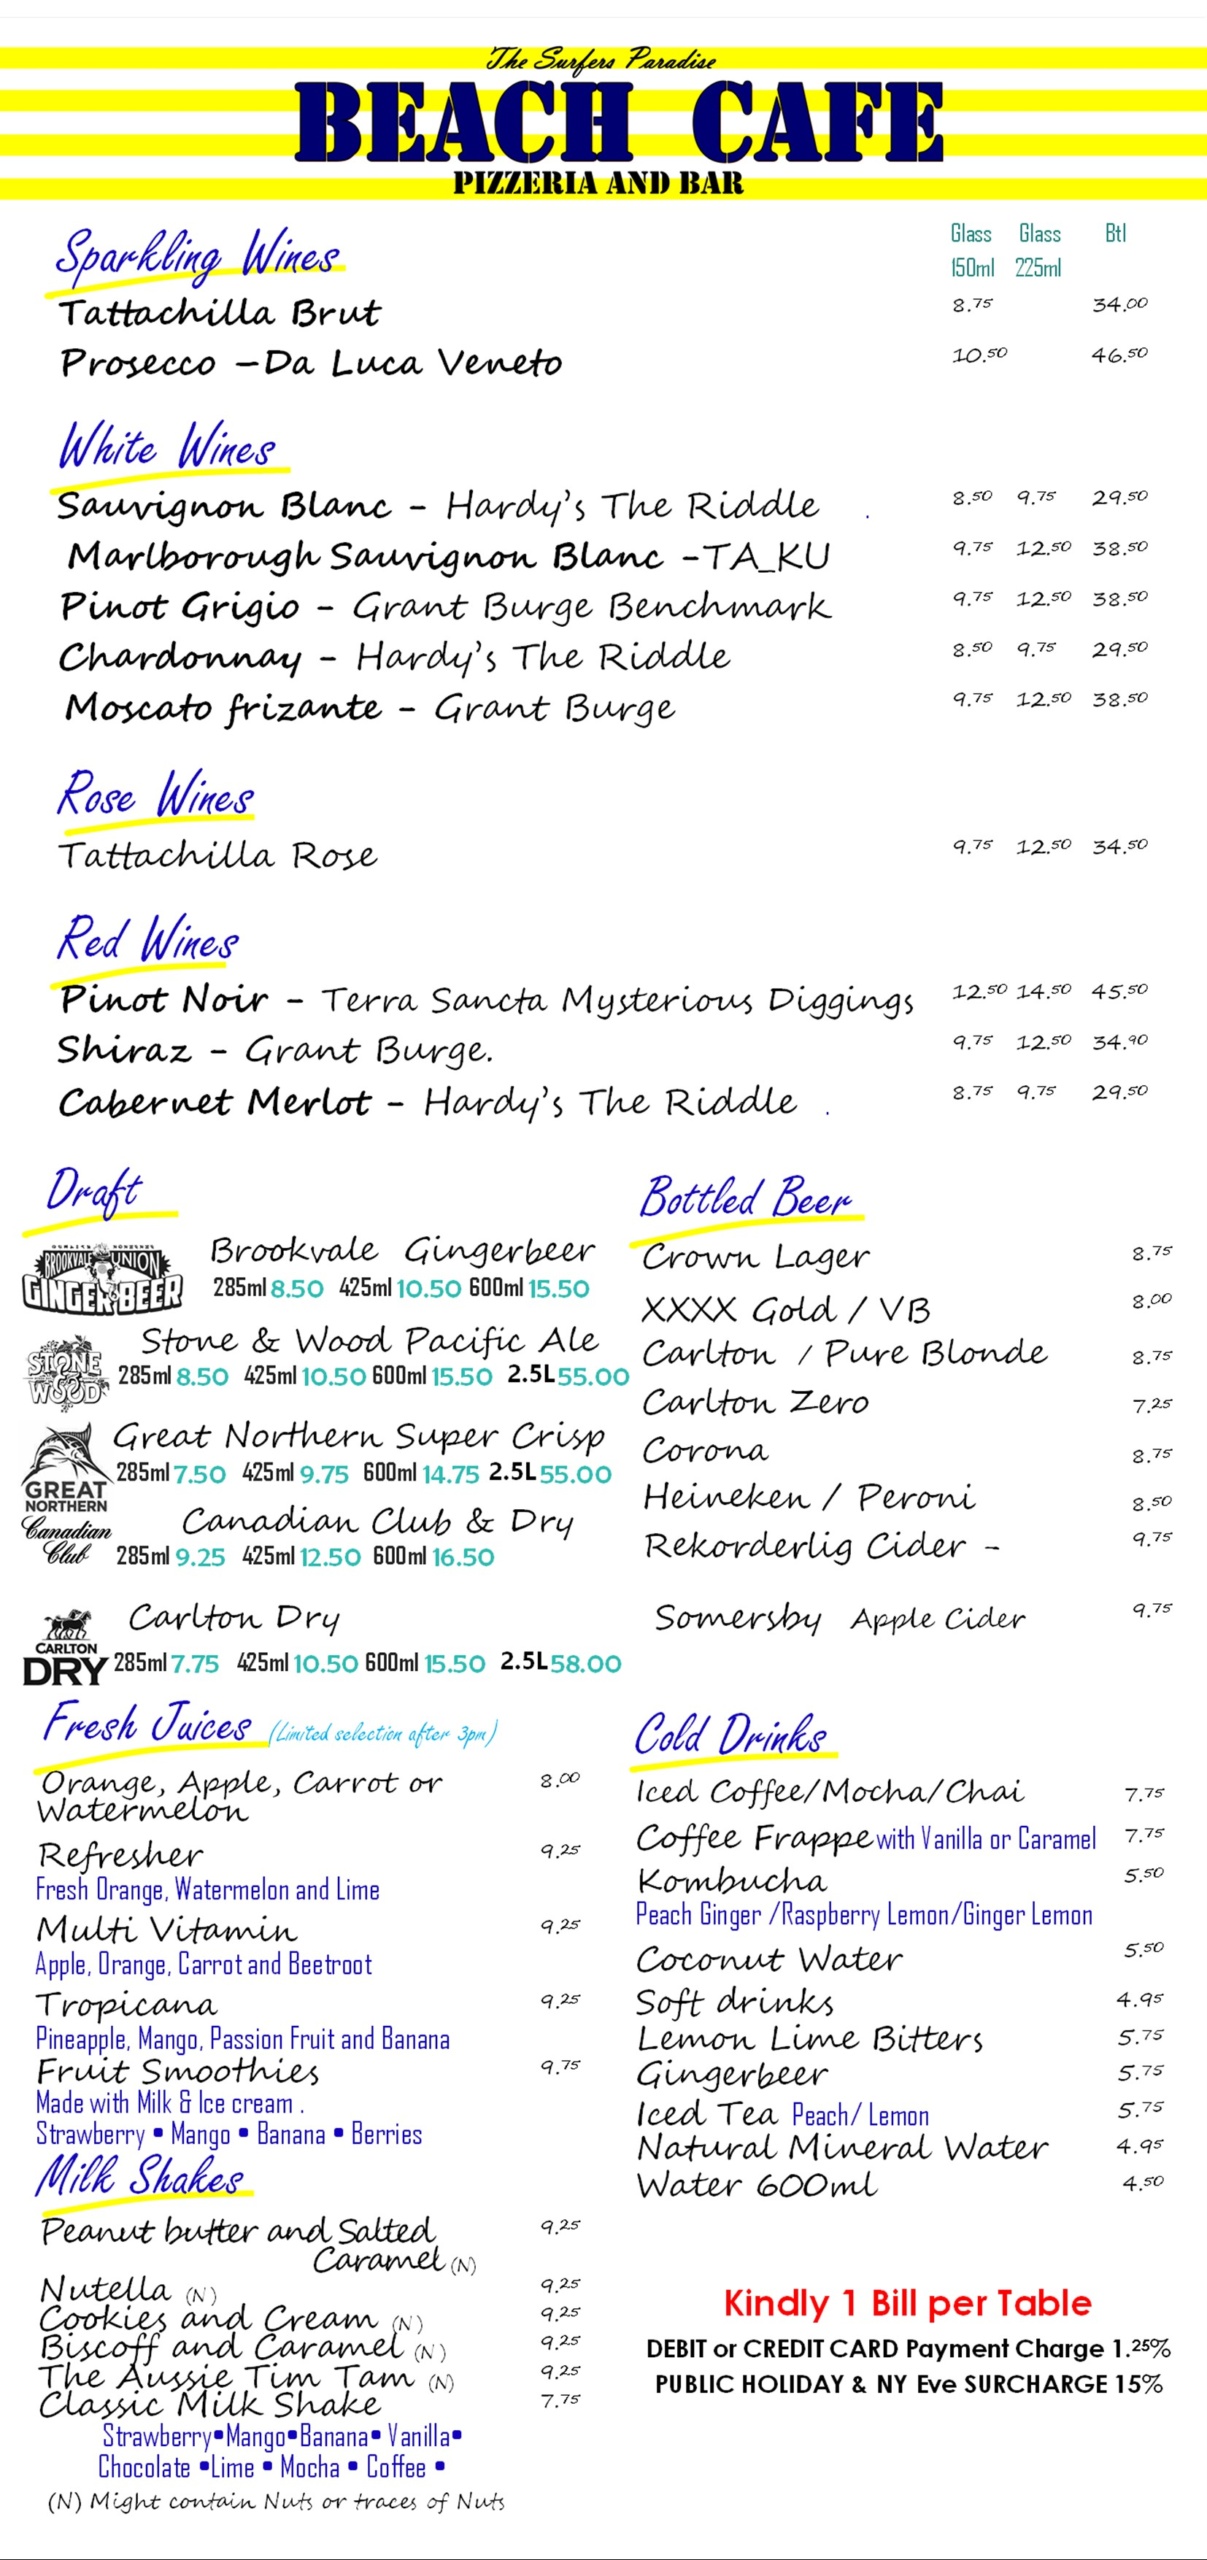 The Surfers Paradise
BEACH CAFE
PIZZERIA AND BAR
Glass Glass Btl
Sparkling Wines
150ml 225ml
Tattachilla Brut 8.75 34.00
Prosecco –Da Luca Veneto 10.50 46.50
White Wines
Sauvignon Blanc - Hardy's The Riddle . 8.50 9.75 29.50
Marlborough Sauvignon Blanc -TA_KU 9.75 12.50 38.50
Pinot Grigio - Grant Burge Benchmark 9.75 12.50 38.50
Chardonnay - Hardy's The Riddle 8.50 9.75 29.50
Moscato frizante - Grant Burge 9.75 12.50 38.50
Rose Wines
Tattachilla Rose 9.75 12.50 34.50
Red Wines
Pinot Noir - Terra Sancta Mysterious Diggings 12.50 14.50 45.50
Shiraz - Grant Burge. 9.75 12.50 34.90
Cabernet Merlot - Hardy's The Riddle . 8.75 9.75 29.50
Draft
BROOKVALE UNION
GINGER BEER
Brookvale Gingerbeer
285ml 8.50 425ml 10.50 600ml 15.50
STONE & WOOD
Stone & Wood Pacific Ale
285ml 8.50 425ml 10.50 600ml 15.50 2.5L 55.00
GREAT
NORTHERN
Great Northern Super Crisp
285ml 7.50 425ml 9.75 600ml 14.75 2.5L 55.00
Canadian
Club
Canadian Club & Dry
285ml 9.25 425ml 12.50 600ml 16.50
CARLTON
DRY
Carlton Dry
285ml 7.75 425ml 10.50 600ml 15.50 2.5L 58.00
Bottled Beer
Crown Lager 8.75
XXXX Gold / VB 8.00
Carlton / Pure Blonde 8.75
Carlton Zero 7.25
Corona 8.75
Heineken / Peroni 8.50
Rekorderlig Cider - 9.75
Somersby Apple Cider 9.75
Fresh Juices (Limited selection after 3pm)
Orange, Apple, Carrot or 8.00
Watermelon
Refresher 9.25
Fresh Orange, Watermelon and Lime
Multi Vitamin 9.25
Apple, Orange, Carrot and Beetroot
Tropicana 9.25
Pineapple, Mango, Passion Fruit and Banana
Fruit Smoothies 9.75
Made with Milk & Ice cream .
Strawberry • Mango • Banana • Berries
Milk Shakes
Peanut butter and Salted 9.25
Caramel (N)
Nutella (N) 9.25
Cookies and Cream (N) 9.25
Biscoff and Caramel (N) 9.25
The Aussie Tim Tam (N) 9.25
Classic Milk Shake 7.75
Strawberry•Mango•Banana• Vanilla•
Chocolate •Lime • Mocha • Coffee •
(N) Might contain Nuts or traces of Nuts
Cold Drinks
Iced Coffee/Mocha/Chai 7.75
Coffee Frappe with Vanilla or Caramel 7.75
Kombucha 5.50
Peach Ginger /Raspberry Lemon/Ginger Lemon
Coconut Water 5.50
Soft drinks 4.95
Lemon Lime Bitters 5.75
Gingerbeer 5.75
Iced Tea Peach/ Lemon 5.75
Natural Mineral Water 4.95
Water 600ml 4.50
Kindly 1 Bill per Table
DEBIT or CREDIT CARD Payment Charge 1.25%
PUBLIC HOLIDAY & NY Eve SURCHARGE 15%